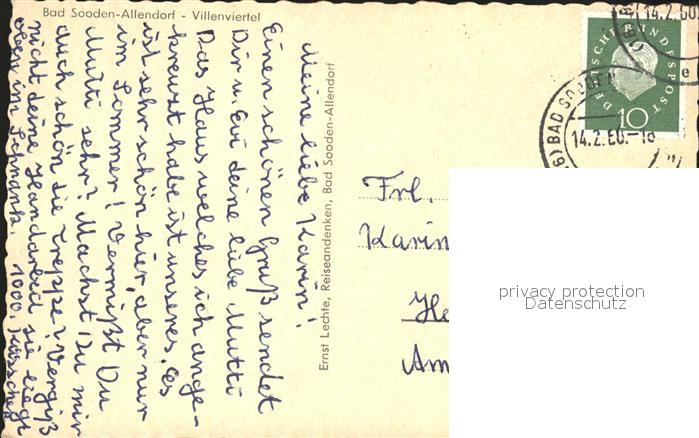 Bad Sooden-Allendorf - Villenviertel
Meine liebe Karin!
Einen schönen Gruß sendet
Dir u. Evi deine liebe Mutti
Das Haus welches ich ange-
kreuzt habe ist unseres. Es
ist sehr schön hier, aber nur
im Sommer! Vermißt Du
Mutti sehr? Machst Du mir
auch schön die Treppe? Vergiß
nicht deine Handarbeit sie liegt
oben im Schrank. 1000 Küsschen
Ernst Lechte, Reiseandenken, Bad Sooden-Allendorf
Frl.
Karin
He
Am
DEUTSCHE BUNDESPOST
10
14.2.60.
BAD SOODEN
14.2.60.-18
e
privacy protection
Datenschutz